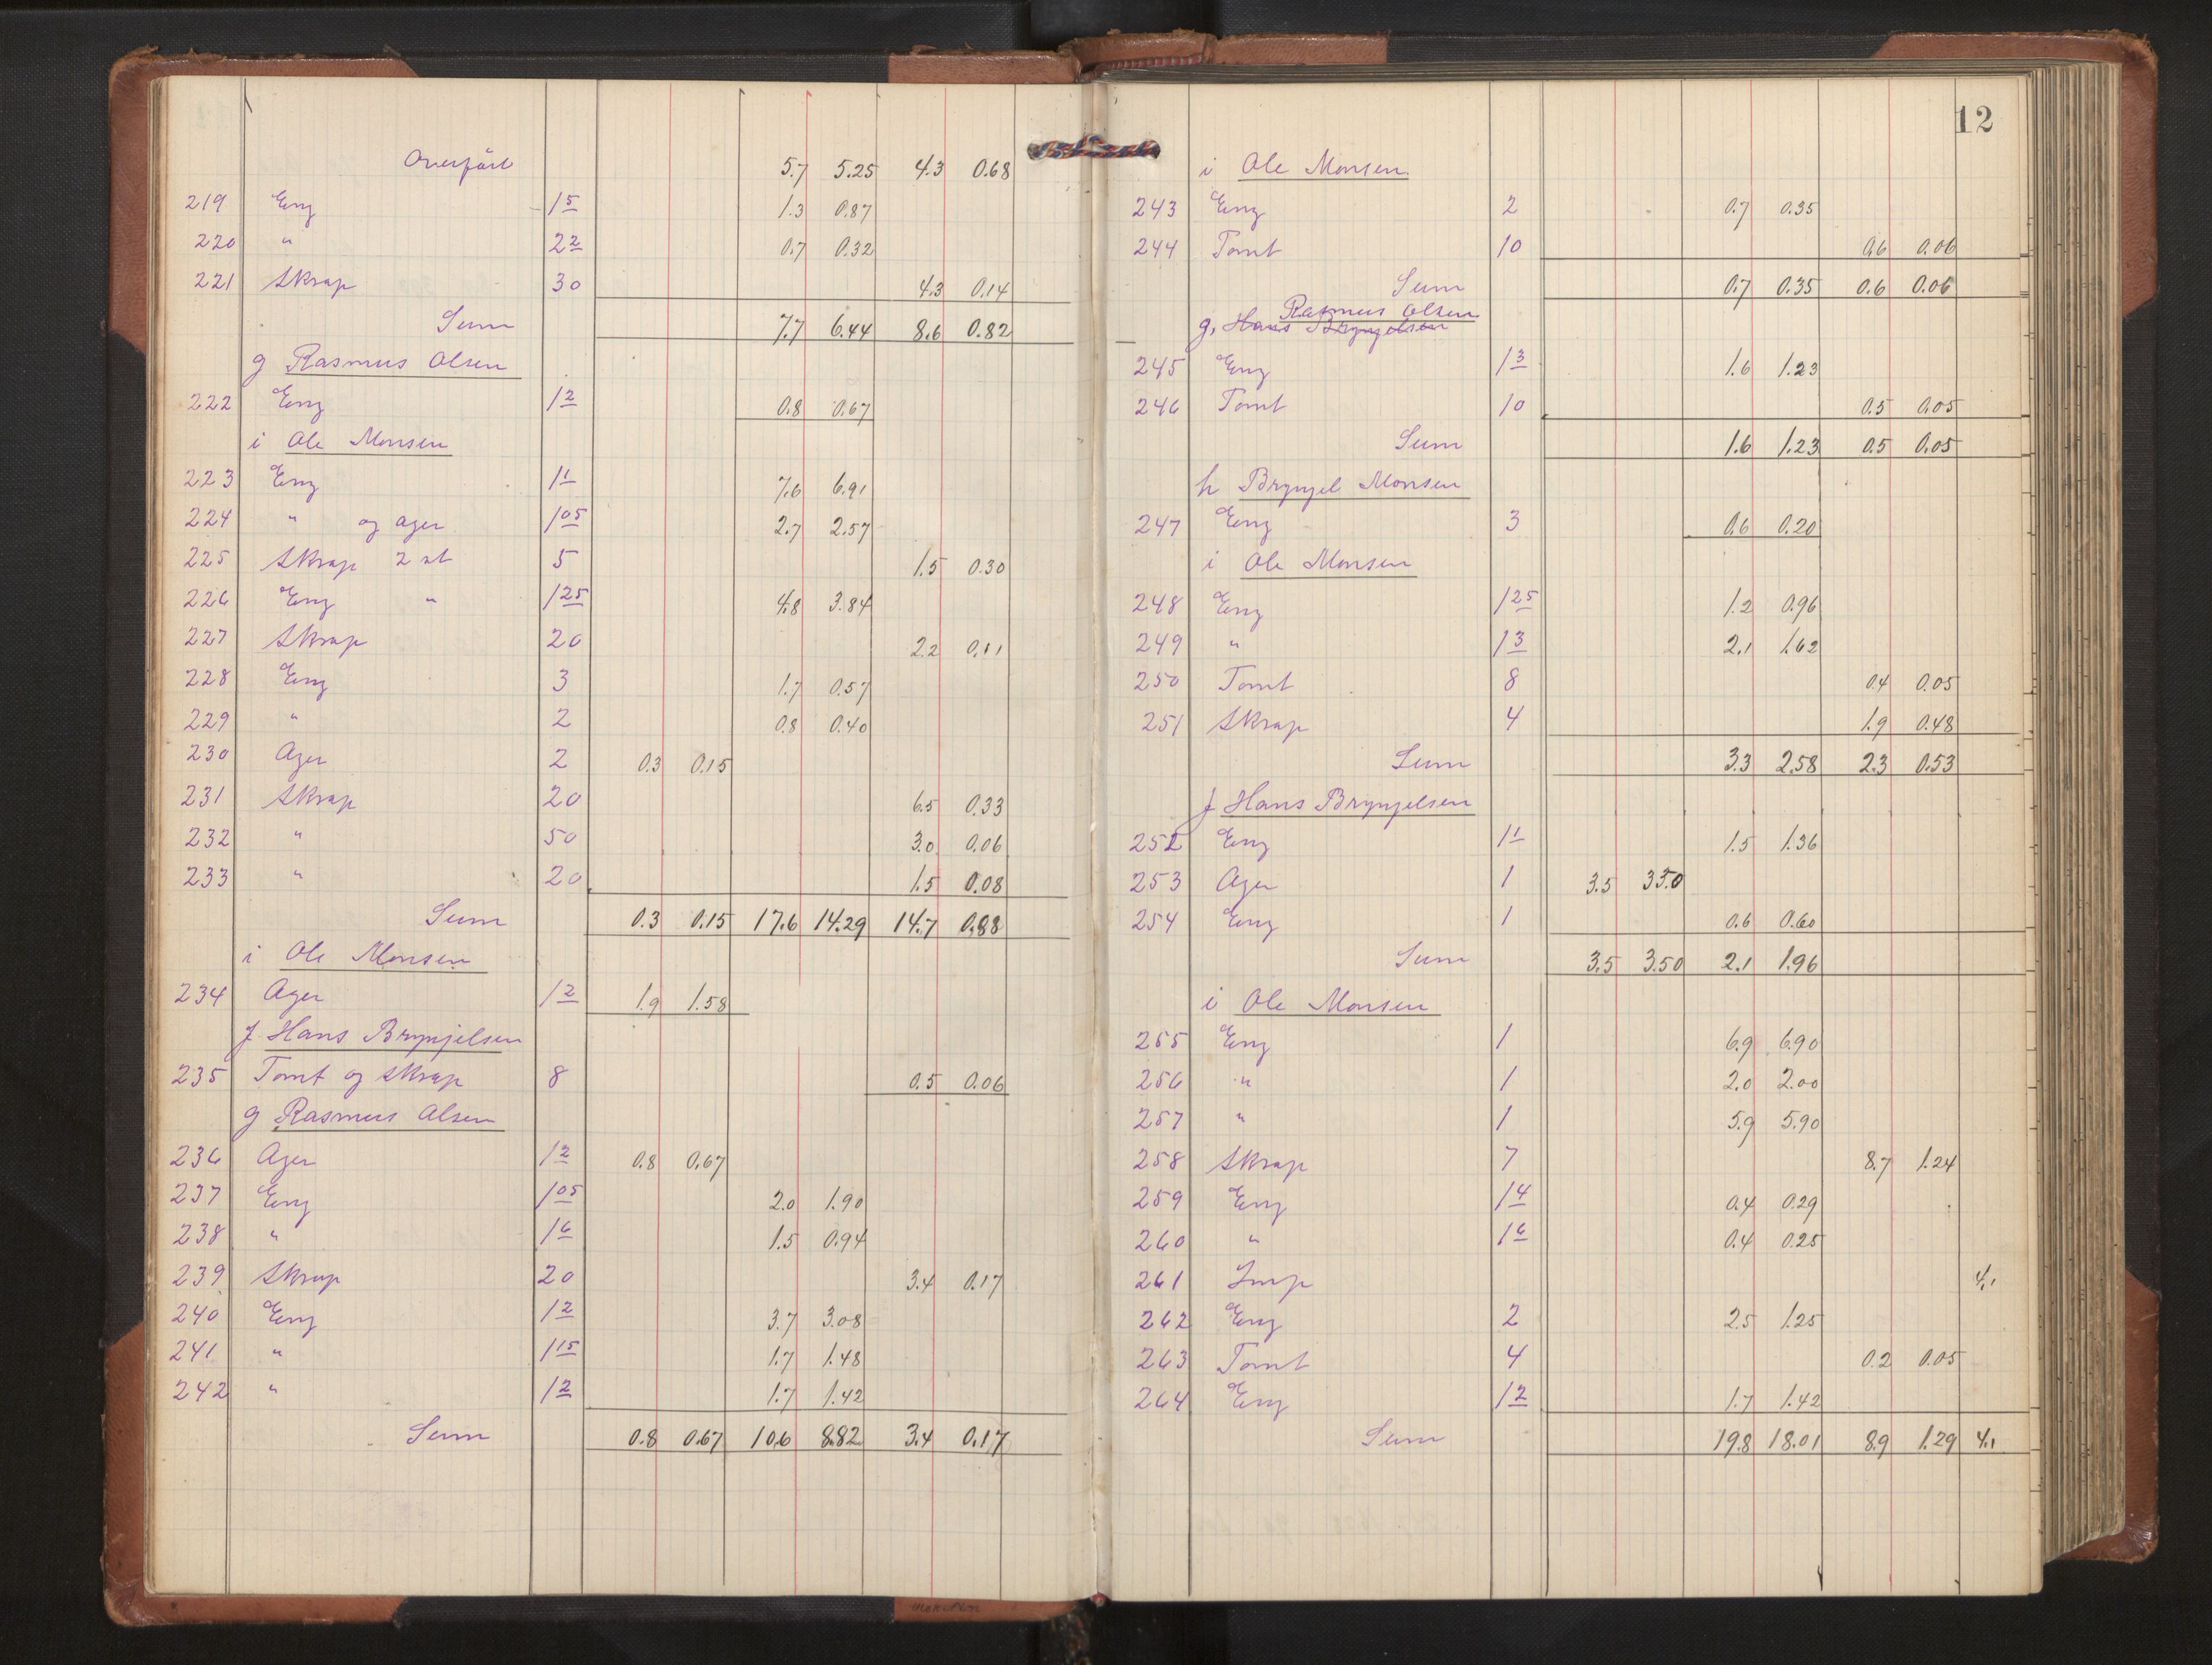 Overført 5.7 5.25 4.3 0.68
219 Eng 1 5 1.3 0.87
220 " 2 2 0.7 0.32
221 Skrap 30 4.3 0.14
Sum 7.7 6.44 8.6 0.82
g Rasmus Olsen
222 Eng 1 2 0.8 0.67
i Ole Monsen
223 Eng 1 1 7.6 6.91
224 " og ager 1 05 2.7 2.57
225 Skrap 2 st 5 1.5 0.30
226 Eng " 1 25 4.8 3.84
227 Skrap 20 2.2 0.11
228 Eng 3 1.7 0.57
229 " 2 0.8 0.40
230 Ager 2 0.3 0.15
231 Skrap 20 6.5 0.33
232 " 50 3.0 0.06
233 " 20 1.5 0.08
Sum 0.3 0.15 17.6 14.29 14.7 0.88
i Ole Monsen
234 Ager 1 2 1.9 1.58
f Hans Brynjelsen
235 Tomt og skrap 8 0.5 0.06
g Rasmus Olsen
236 Ager 1 2 0.8 0.67
237 Eng 1 05 2.0 1.90
238 " 1 6 1.5 0.94
239 Skrap 20 3.4 0.17
240 Eng 1 2 3.7 3.08
241 " 1 15 1.7 1.48
242 " 1 2 1.7 1.42
Sum 0.8 0.67 10.6 8.82 3.4 0.17
12
i Ole Monsen
243 Eng 2 0.7 0.35
244 Tomt 10 0.6 0.06
Sum 0.7 0.35 0.6 0.06
Rasmus Olsen
g, Hans Brynjelsen
245 Eng 1 3 1.6 1.23
246 Tomt 10 0.5 0.05
Sum 1.6 1.23 0.5 0.05
h Brynjel Monsen
247 Eng 3 0.6 0.20
i Ole Monsen
248 Eng 1 25 1.2 0.96
249 " 1 3 2.1 1.62
250 Tomt 8 0.4 0.05
251 Skrap 4 1.9 0.48
Sum 3.3 2.58 2.3 0.53
f Hans Brynjelsen
252 Eng 1 1 1.5 1.36
253 Ager 1 3.5 3.50
254 Eng 1 0.6 0.60
Sum 3.5 3.50 2.1 1.96
i Ole Monsen
255 Eng 1 6.9 6.90
256 " 1 2.0 2.00
257 " 1 5.9 5.90
258 Skrap 7 8.7 1.24
259 Eng 1 4 0.4 0.29
260 " 1 6 0.4 0.25
261 Imp 4.1
262 Eng 2 2.5 1.25
263 Tomt 4 0.2 0.05
264 Eng 1 2 1.7 1.42
Sum 19.8 18.01 8.9 1.29 4.1